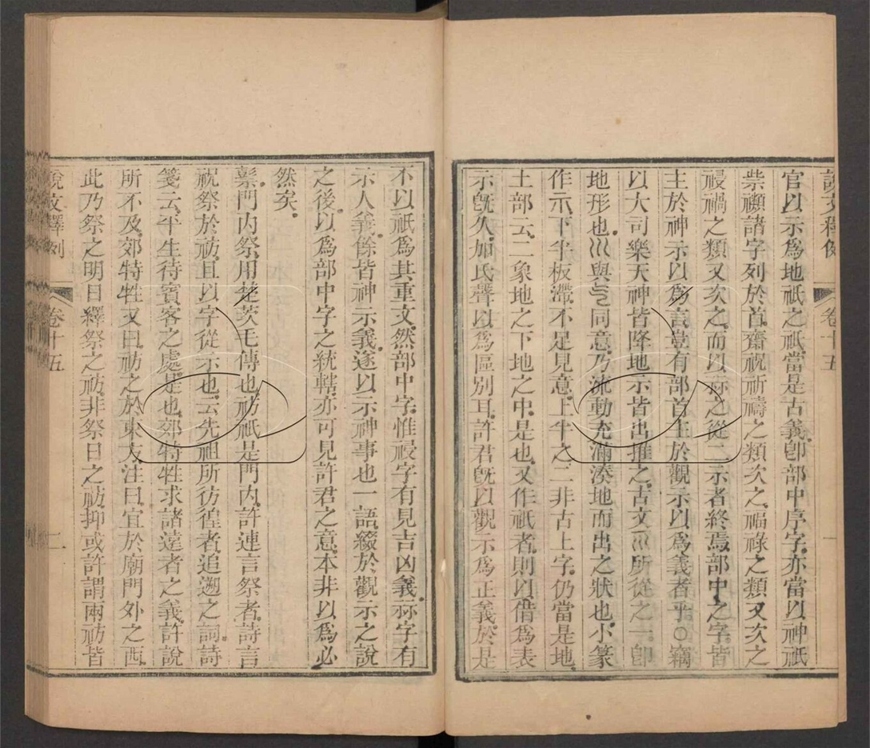 說文釋例 卷十五 一
官以示爲地祇之祇當是古義卽部中序字亦當以神祇
祡禷諸字列於首齋祝祈禱之類次之福祿之類又次之
祲禍之類又次之而以祘之從二示者終焉部中之字皆
主於神示以爲言豈有部首主於觀示以爲義者乎○竊
以大司樂天神皆降地示皆出推之古文 所從之一卽
地形也巛與 同意乃流動充滿湊地而出之狀也小篆
作示下半板滯不足見意上半之二非古上字仍當是地
土部云二象地之下地之中是也又作祇者則以借爲表
示旣久加氏聲以爲區別耳許君旣以觀示爲正義於是
不以祇爲其重文然部中字惟祲字有見吉凶義祘字有
示人義餘皆神示義遂以示神事也一語綴於觀示之說
之後以爲部中字之統轄亦可見許君之意本非以爲必
然矣
䄜門內祭用楚茨毛傳也祊祇是門內許連言祭者詩言
祝祭於祊且以字從示也云先祖所彷徨者追遡之詞詩
箋云平生待賓客之處是也郊特牲求諸遠者之義許說
所不及郊特牲又曰祊之於東方注曰宜於廟門外之西
此乃祭之明日繹祭之祊非祭日之祊抑或許謂兩祊皆
說文釋例 卷十五 二